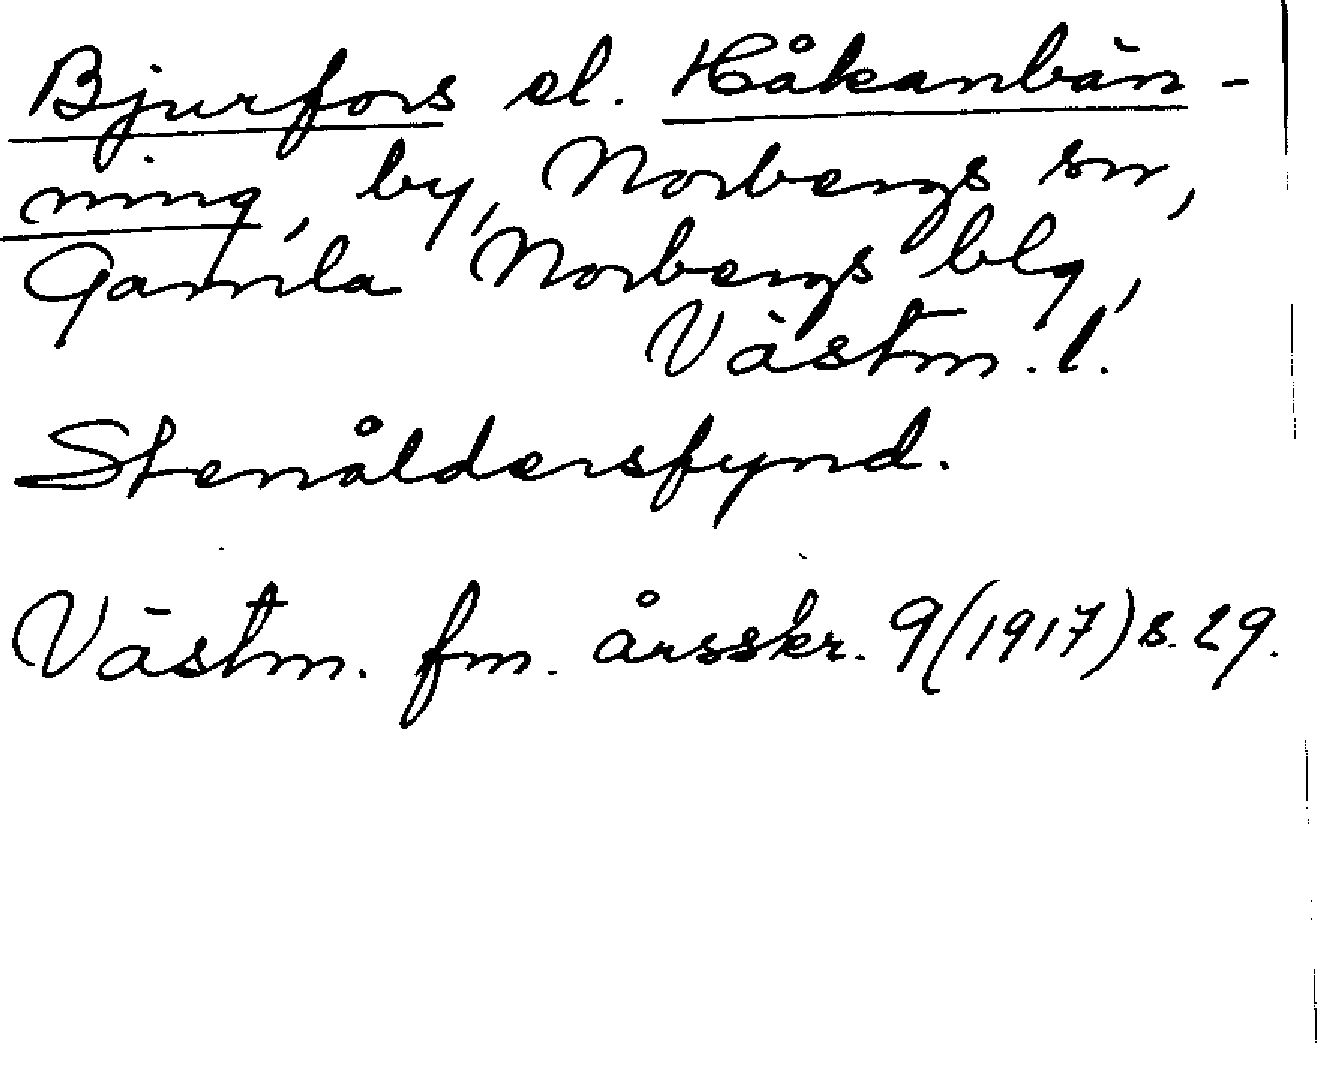 Bjurfors el. Håkanbän-
ning, by, Norbergs sn,
Gamla Norbergs blg,
Västm. l.
Stenåldersfynd.
Västm. fm. årsskr. 9(1917) s. 29.